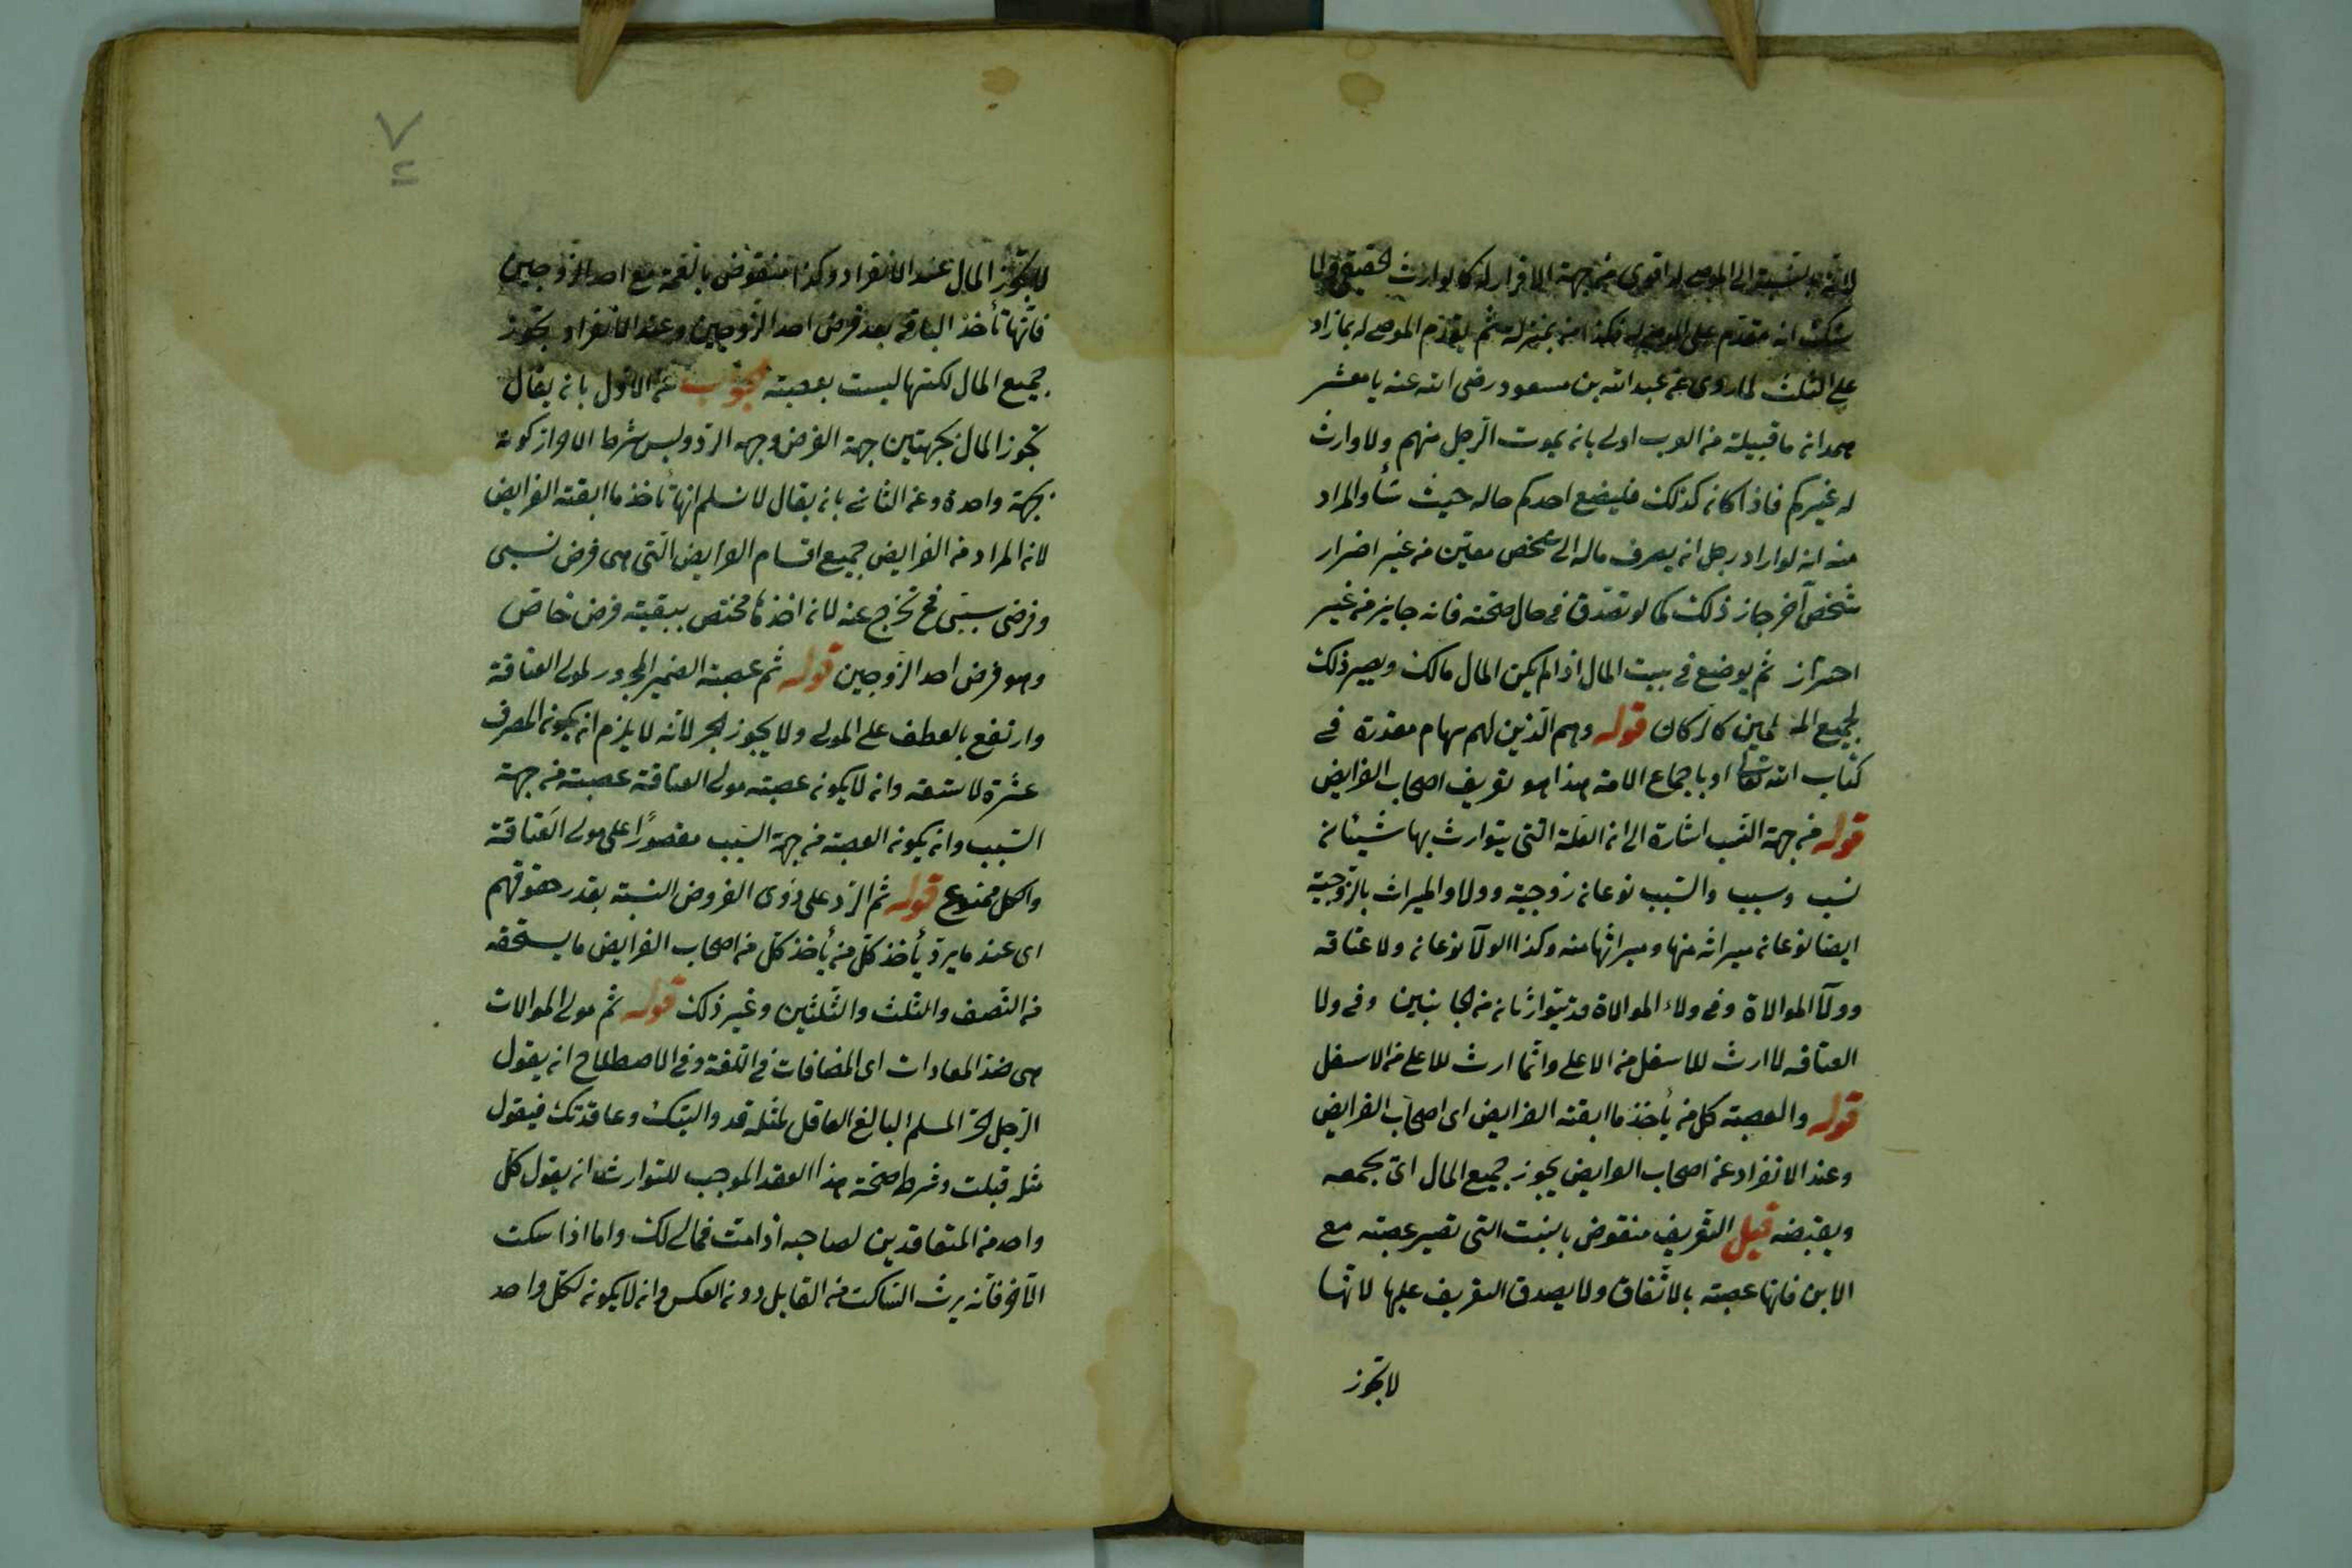 لانه بالنسبة الى الموصى له اقوى من جهة الاقرار له كالوارث الحقيقى ولا
شك انه مقدم على الموصى له فكذا من بمنزلته ثم يقدم الموصى له بما زاد
على الثلث لما روى عن عبد الله بن مسعود رضى الله عنه يا معشر
همدان ما قبيلة من العرب اولى بان يموت الرجل منهم ولا وارث
له غيركم فاذا كان كذلك فليضع احدكم ماله حيث شأ والمراد
منه انه لو اراد رجل ان يصرف ماله الى شخص معين من غير اضرار
شخص آخر جاز ذلك كما لو تصدق فى حال صحته فانه جايز من غير
احتراز ثم يوضع فى بيت المال اذا لم يكن المال مالك ويصير ذلك
لجميع المسلمين كالركان قوله وهم الذين لهم سهام مقدرة فى
كتاب الله تعالى او باجماع الامة هذا هو تعريف اصحاب الفرايض
قوله من جهة النسب اشارة الى ان العلة التى يتوارث بها شيئان
نسب وسبب والسبب نوعان زوجية وولا والميراث بالزوجية
ايضا نوعان ميراثه منها وميراثها منه وكذا الولآ نوعان ولا عتاقه
وولآ الموالاة وفى ولاء الموالاة قد يتوارثان من الجانبين وفى ولا
العتاقه لا ارث للاسفل من الاعلى وانما ارث للاعلى من الاسفل
قوله والعصبة كل من يأخذ ما ابقته الفرايض اى اصحاب الفرايض
وعند الانفراد عن اصحاب الفرايض يحوز جميع المال اى يجمعه
ويقبضه قيل التعريف منقوض بالبنت التى تصير عصبته مع
الابن فانها عصبته بالاتفاق ولا يصدق التعريف عليها لانها
لا تحوز
٧
لا تحوز المال عند الانفراد وكذا منقوض بالعمة مع احد الزوجين
فانها تأخذ الباقى بعد فرض احد الزوجين وعند الانفراد تحوز
جميع المال لكنها ليست بعصبته الجواب عن الاول بان يقال
تحوز المال بجهتين جهة الفرض وجهه الرد وليس شرط الاحراز كونه
بجهة واحدة وعن الثانى بان يقال لا نسلم انها تأخذ ما ابقته الفرايض
لان المراد من الفرايض جميع اقسام الفرايض التى هى فرض نسبى
وفرض سببى فح تخرج عنه لان اخذها مختص ببقيته فرض خاص
وهو فرض احد الزوجين قوله ثم عصبته الضمير المجرور لمولى العتاقة
وارتفع بالعطف على المولى ولا يجوز الجر لانه لا يلزم ان يكون المصرف
عشرة لا تسعة وان لا يكون عصبته مولى العتاقة عصبته من جهة
السبب وان يكون العصبته من جهة السبب مقصورًا على مولى العتاقة
والكل ممنوع قوله ثم الرد على ذوى الفروض النسبة بقدر حقوقهم
اى عند ما يرد يأخذ كل من يأخذ كل من اصحاب الفرايض ما يستحقه
من النصف والثلث والثلثين وغير ذلك قوله ثم مولى الموالات
هى ضد المعادات اى المضافات فى اللغة وفى الاصطلاح ان يقول
الرجل الحر المسلم البالغ العاقل لمثله قد واليتك وعاقدتك فيقول
مثله قبلت وشرط صحة هذا العقد الموجب للتوارث ان يقول كل
واحد من المتعاقدين لصاحبه اذا مت فمالى لك واما اذا سكت
الآخر فانه يرث الساكت من القايل دون العكس وان لا يكون لكل واحد